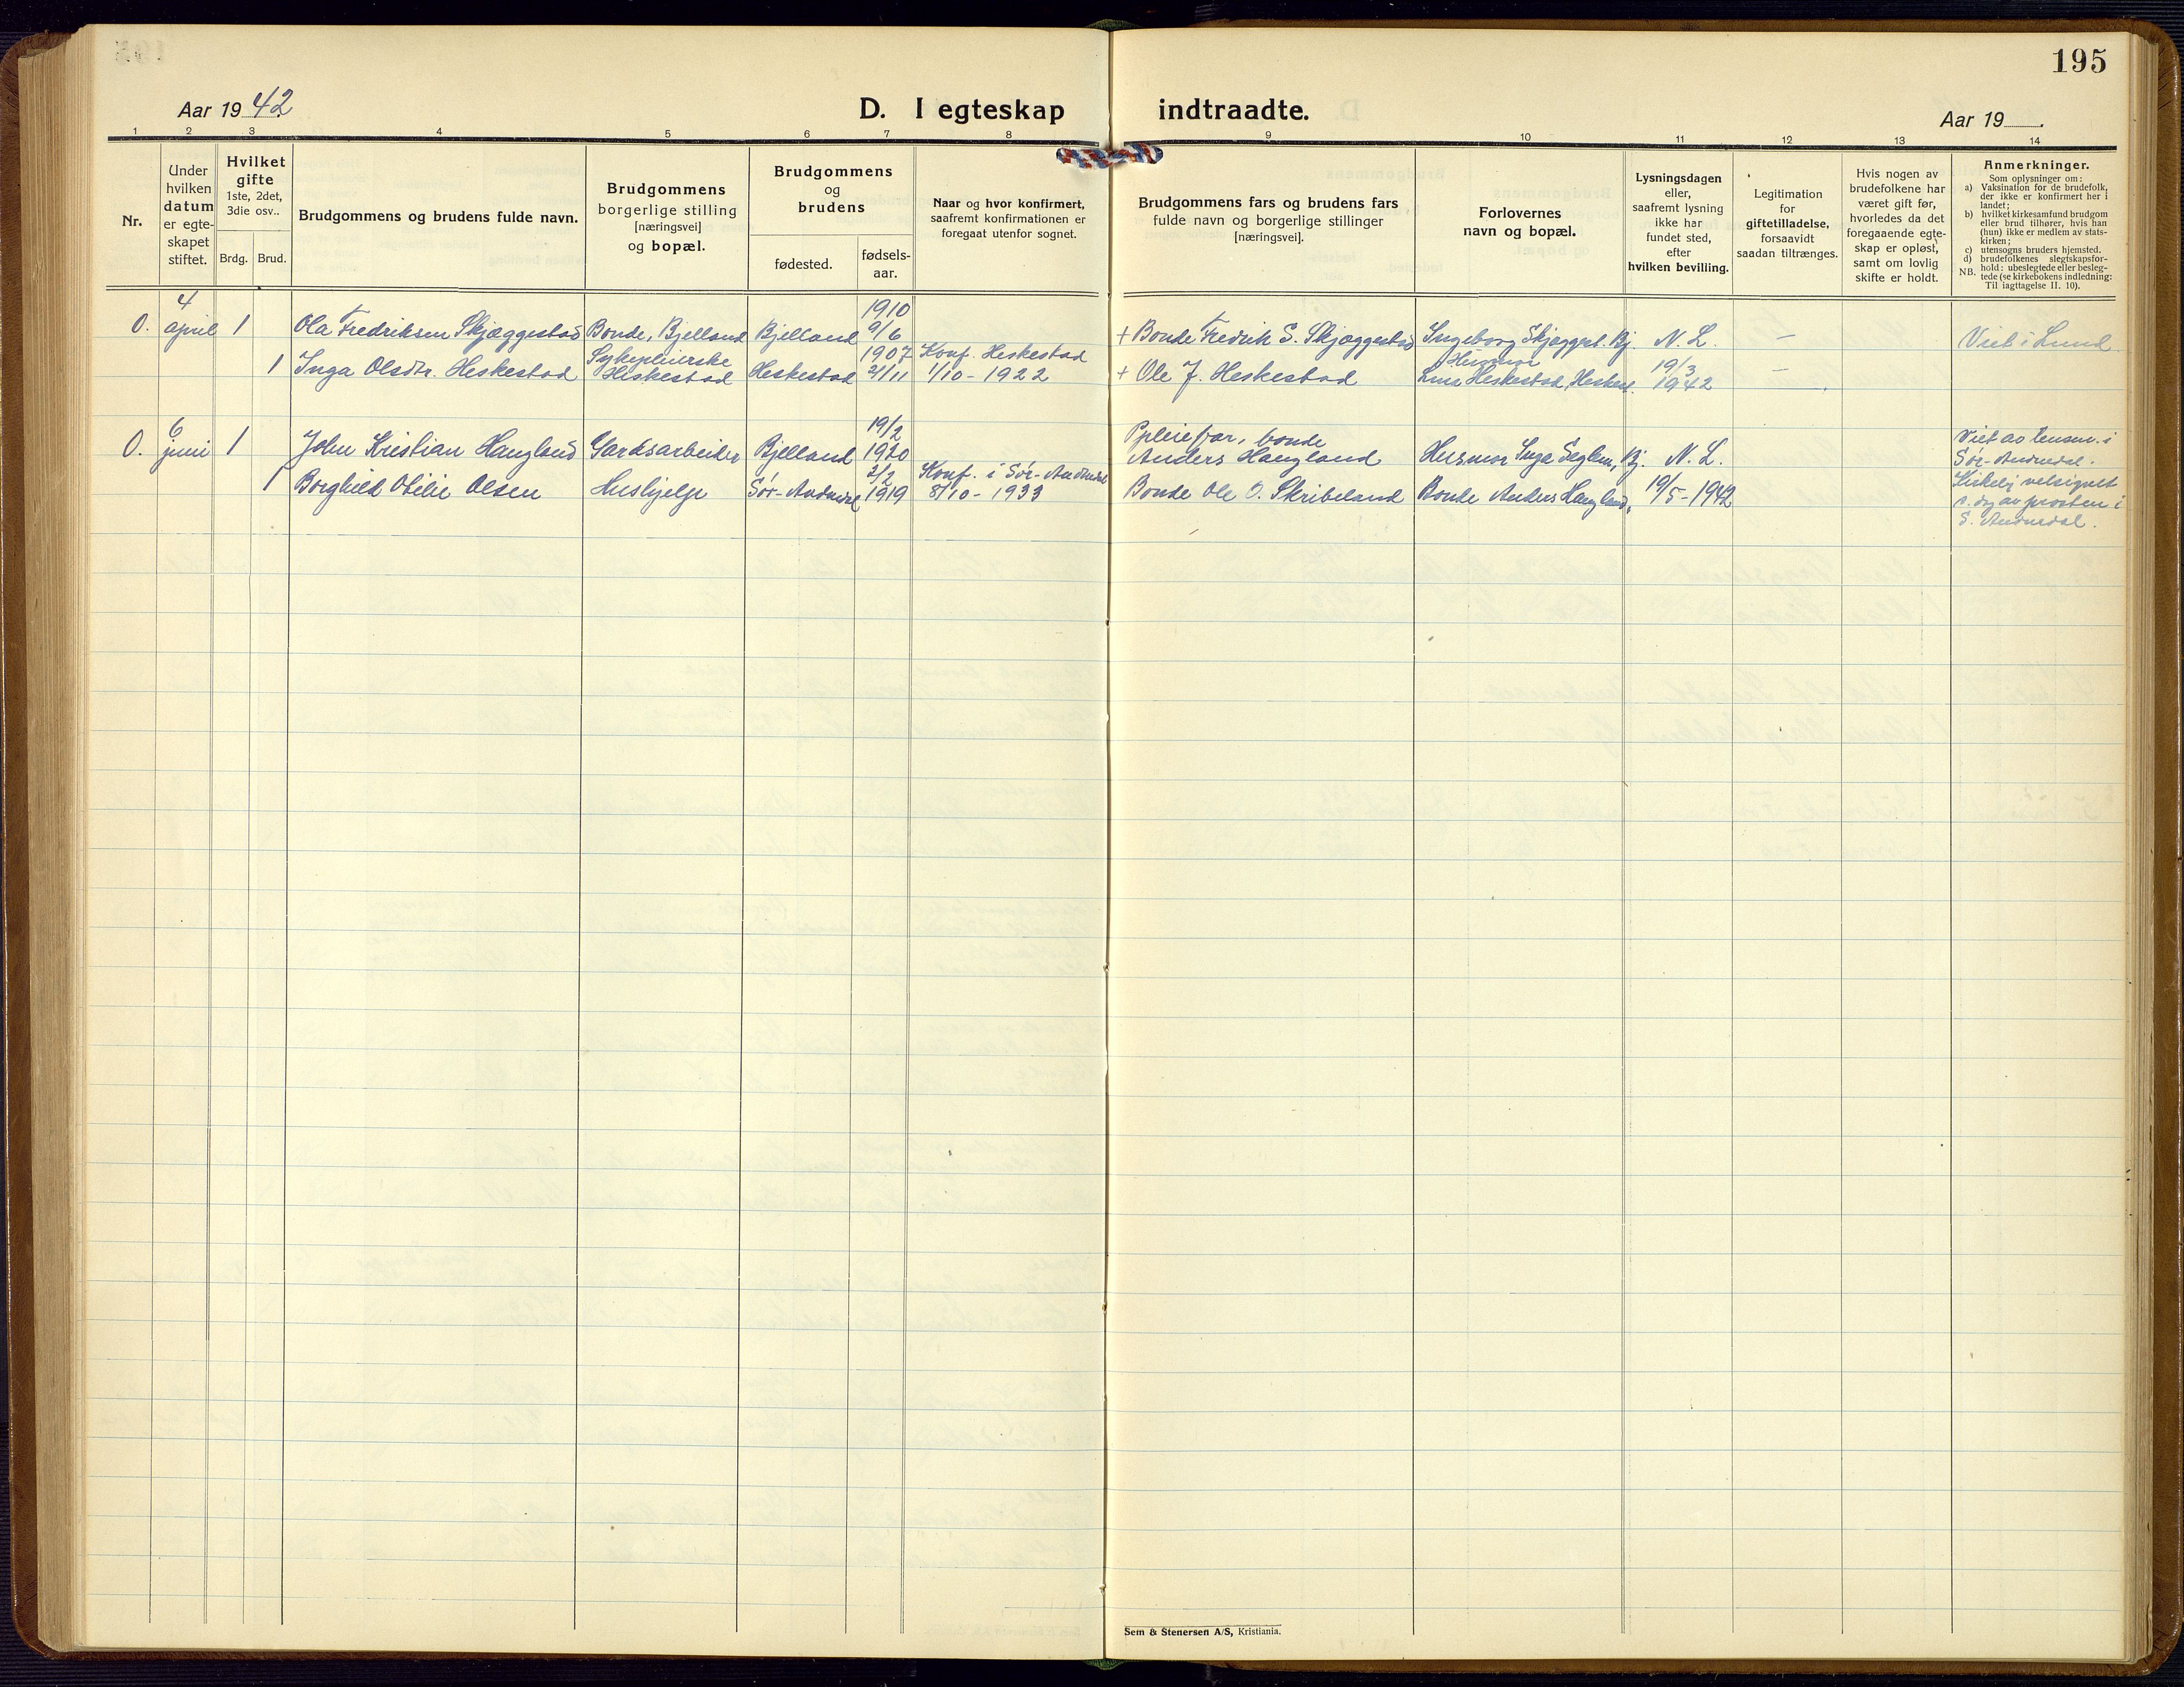 195
Aar 1942
D. I egteskap indtraadte.
Aar 19
1 2 3 4 5 6 7 8 9 10 11 12 13 14
Nr.
Under
hvilken
datum
er egte-
skapet
stiftet.
Hvilket
gifte
1ste, 2det,
3die osv..
Brdg. Brud.
Brudgommens og brudens fulde navn.
Brudgommens
borgerlige stilling
[næringsvei]
og bopæl.
Brudgommens
og
brudens
fødested.
fødsels-
aar.
Naar og hvor konfirmert,
saafremt konfirmationen er
foregaat utenfor sognet.
Brudgommens fars og brudens fars
fulde navn og borgerlige stillinger
[næringsvei].
Forlovernes
navn og bopæl.
Lysningsdagen
eller,
saafremt lysning
ikke har
fundet sted,
efter
hvilken bevilling.
Legitimation
for
giftetilladelse,
forsaavidt
saadan tiltrænges.
Hvis nogen av
brudefolkene har
været gift før,
hvorledes da det
foregaaende egte-
skap er opløst,
samt om lovlig
skifte er holdt.
Anmerkninger.
Som oplysninger om:
a) Vaksination for de brudefolk,
der ikke er konfirmert her i
landet;
b) hvilket kirkesamfund brudgom
eller brud tilhører, hvis han
(hun) ikke er medlem av stats-
kirken;
c) utensogns bruders hjemsted.
d) brudefolkenes slegtskapsfor-
hold: ubeslegtede eller besleg-
tede (se kirkebokens indledning:
NB. Til iagttagelse II. 10).
0.
4
april
1
Ola Fredriksen Skjæggestad
Bonde, Bjelland
Bjelland
1910
9/6
+ Bonde Fredrik S. Skjæggestad
Ingeborg Skjæggest. Bj.
N. L.
—
Viet i Lund
1
Inga Olsdtr. Heskestad
Sykepleierske
Heskestad
Heskestad
1907
21/11
Konf. Heskestad
1/10 - 1922
+ Ole J. Heskestad
Husmor
Heskestad, Heskest.
19/3
1942
—
0.
6
juni
1
John Kristian Haugland
Gardsarbeider
Bjelland
19/2
1920
Ppleiefar, bonde
Anders Haugland
Husmor Inga Seglem, Bj.
N. L.
Viet av lensm. i
Sør-Audnedal.
1
Borghild Otilie Olsen
Hushjelp
Sør-Audnedal
2/2
1919
Konf. i Sør-Audnedal
8/10 - 1933
Bonde Ole O. Skribeland
Bonde Anders Haugland,
19/5 - 1942
Kirkelj velsignet
s. dag av prosten i
S. Audnedal.
Sem & Stenersen A/S, Kristiania.